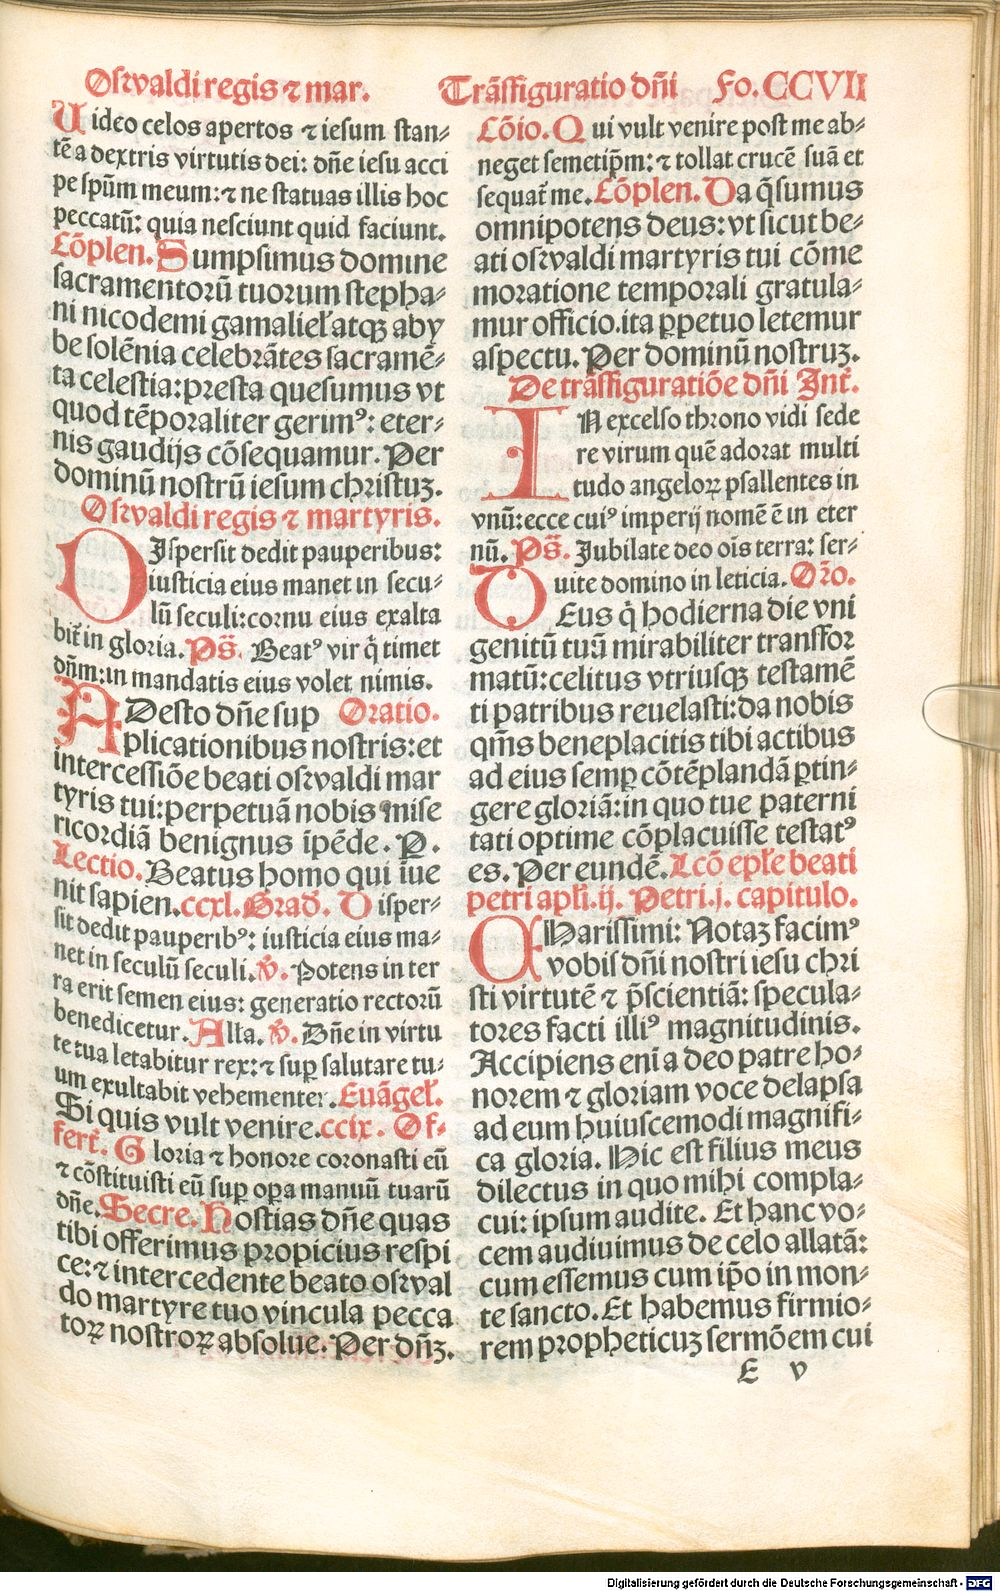 Osrvaldi regis ⁊ mar.
Trāsfiguratio dñi Fo.CCVII
Uideo celos apertos ⁊ iesum stan-
tē a dextris virtutis dei: dñe iesu acci
pe spūm meum: ⁊ ne statuas illis hoc
peccatū: quia nesciunt quid faciunt.
Cōplen. Sumpsimus domine
sacramentorū tuorum stepha-
ni nicodemi gamaliel atqꝫ aby
be solēnia celebrātes sacramē-
ta celestia: presta quesumus vt
quod tēporaliter gerimꝰ: eter-
nis gaudijs cōsequamur. Per
dominū nostrū iesum christuꝫ.
Osrvaldi regis ⁊ martyris.
DIspersit dedit pauperibus:
iusticia eius manet in secu-
lū seculi: cornu eius exalta
bit in gloria. Ps. Beatꝰ vir q̄ timet
dñm: in mandatis eius volet nimis.
ADesto dñe sup Oratio.
plicationibus nostris: et
intercessiōe beati osrvaldi mar
tyris tui: perpetuā nobis mise
ricordiā benignus īpēde. P.
Lectio. Beatus homo qui iūe
nit sapien. ccxl. Grad. Disper-
sit dedit pauperibꝰ: iusticia eius ma-
net in seculū seculi. ℣. Potens in ter
ra erit semen eius: generatio rectorū
benedicetur. Alla. ℣. Dñe in virtu
te tua letabitur rex: ⁊ suꝑ salutare tu-
um exultabit vehementer. Euāgel.
Si quis vult venire. ccix. Of-
fert. Gloria ⁊ honore coronasti eū
⁊ cōstituisti eū suꝑ oꝑa manuū tuarū
dñe. Secre. Hostias dñe quas
tibi offerimus propicius respi
ce: ⁊ intercedente beato osrval
do martyre tuo vincula pecca
toꝝ nostroꝝ absolue. Per dñꝫ.
Cōio. Qui vult venire post me ab-
neget semetip̄m: ⁊ tollat crucē suā et
sequat̄ me. Cōplen. Da q̄sumus
omnipotens deus: vt sicut be-
ati osrvaldi martyris tui cōme
moratione temporali gratula-
mur officio. ita ꝑpetuo letemur
aspectu. Per dominū nostruꝫ.
De trāsfiguratiōe dñi Int̄.
IN excelso throno vidi sede
re virum quē adorat multi
tudo angeloꝝ psallentes in
vnū: ecce cuiꝰ imperij nomē ē in eter
nū. Ps. Jubilate deo oīs terra: ser-
uite domino in leticia. Orō.
DEus q̄ hodierna die vni
genitū tuū mirabiliter transfor
matū: celitus vtriusqꝫ testamē
ti patribus reuelasti: da nobis
qm̄s beneplacitis tibi actibus
ad eius semꝑ cōtēplandā ꝑtin-
gere gloriā: in quo tue paterni
tati optime cōplacuisse testatꝰ
es. Per eundē. Lcō epłe beati
petri apłi. ij. Petri. j. capitulo.
CHarissimi: Notaꝫ facimꝰ
vobis dñi nostri iesu chri
sti virtutē ⁊ p̄scientiā: specula-
tores facti illiꝰ magnitudinis.
Accipiens enī a deo patre ho-
norem ⁊ gloriam voce delapsa
ad eum huiuscemodi magnifi-
ca gloria. Hic est filius meus
dilectus in quo mihi compla-
cui: ipsum audite. Et hanc vo-
cem audiuimus de celo allatā:
cum essemus cum ip̄o in mon-
te sancto. Et habemus firmio-
rem propheticuꝫ sermōem cui
E v
Digitalisierung gefördert durch die Deutsche Forschungsgemeinschaft - DFG